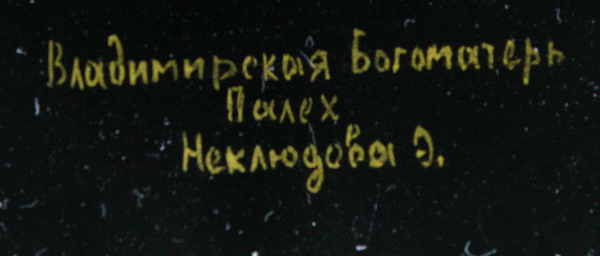 Владимирская Богоматерь
Палех
Неклюдова Э.